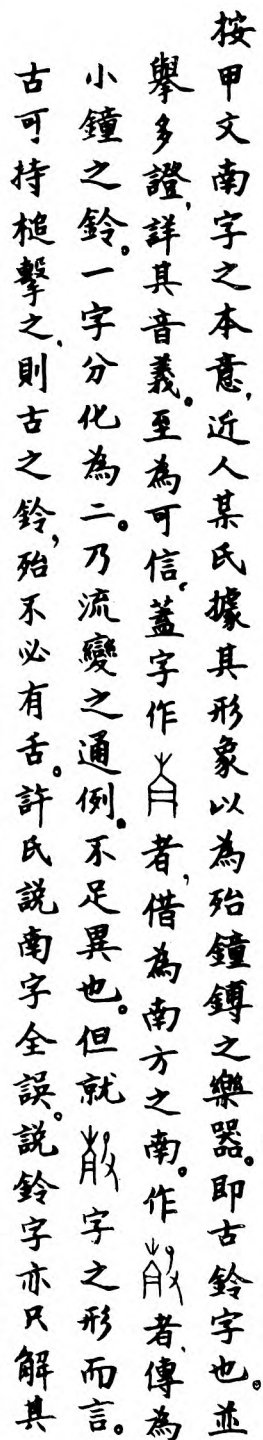 按甲文南字之本意,近人某氏據其形象以為殆鐘鎛之樂器。即古鈴字也。並
舉多證,詳其音義。至為可信。蓋字作者,借為南方之南。作者、傳為
小鐘之鈴。一字分化為二。乃流變之通例。不足異也。但就字之形而言。
古可持槌擊之、則古之鈴,殆不必有舌。許氏說南字全誤。說鈴字亦只解其